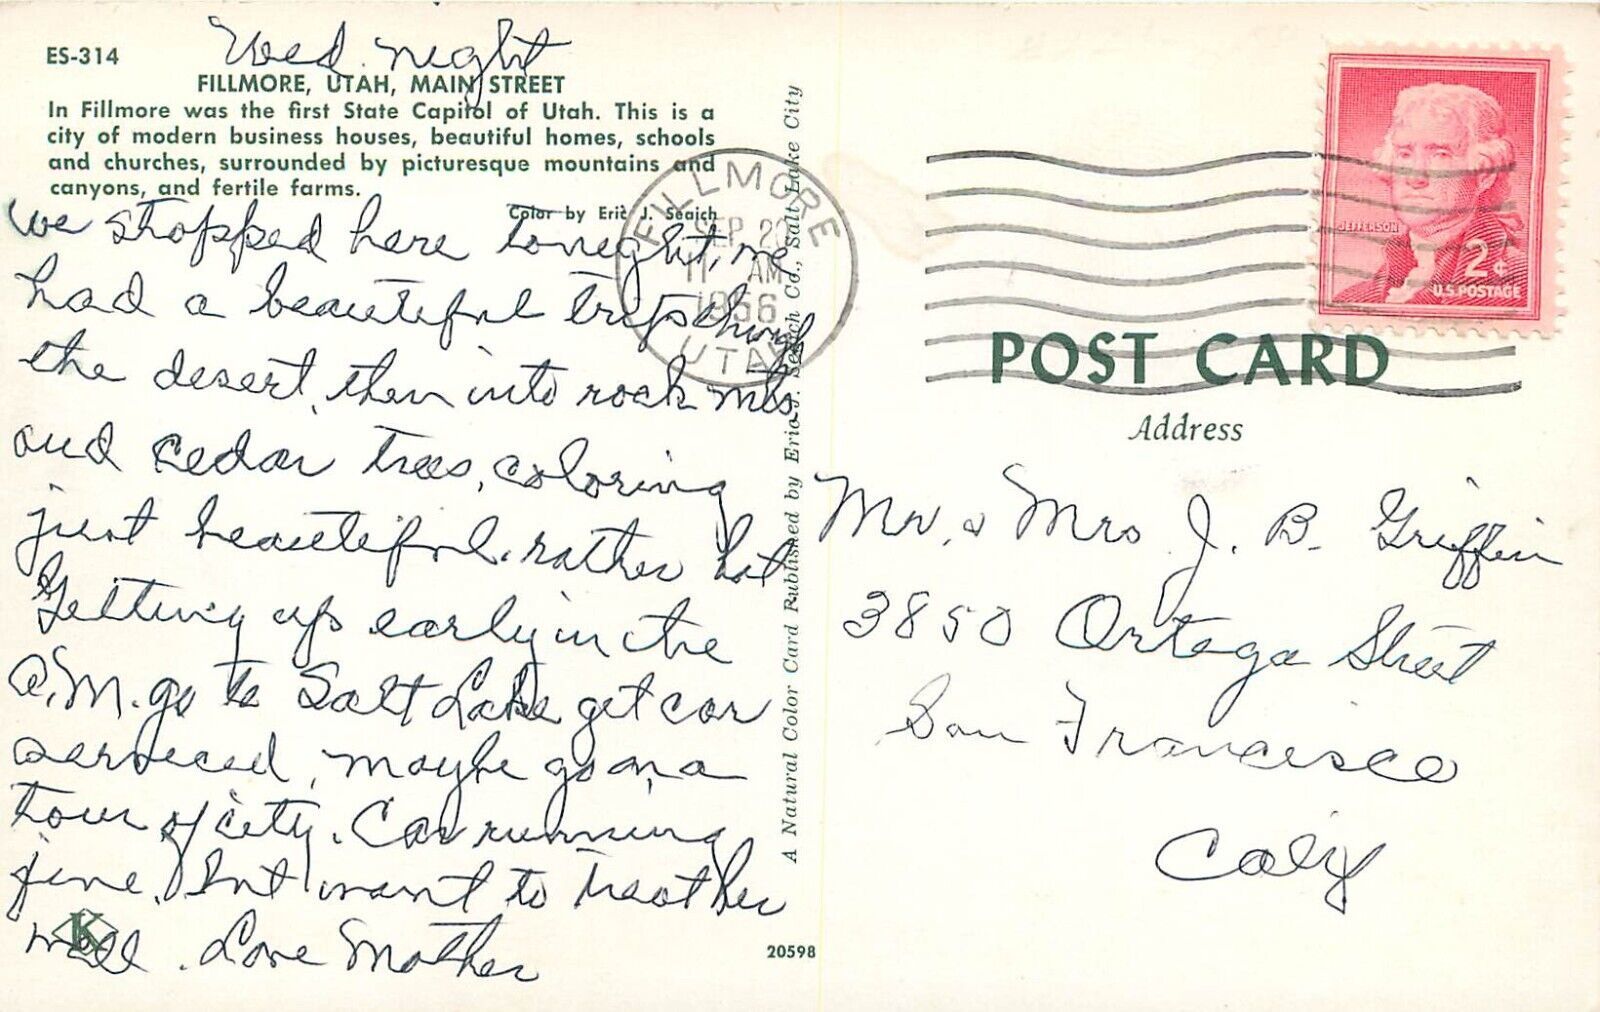 ES-314
Wed. night
FILLMORE, UTAH, MAIN STREET
In Fillmore was the first State Capitol of Utah. This is a
city of modern business houses, beautiful homes, schools
and churches, surrounded by picturesque mountains and
canyons, and fertile farms.
Color by Eric J. Seaich
we stopped here tonight, we
had a beautiful trip through
the desert, then into rock mts
and cedar trees, coloring
just beautiful. rather hot
Getting up early in the
A.M. go to Salt Lake get car
serviced, maybe go on a
tour of city. Car running
fine. But want to treat her
well. Love Mother
K
20598
A Natural Color Card Published by Eric J. Seaich Co., Salt Lake City
FILLMORE
SEP 20
11 AM
1956
UTAH
JEFFERSON
2¢
U.S. POSTAGE
POST CARD
Address
Mr. & Mrs J. B. Griffin
3850 Ortega Street
San Francisco
Calif